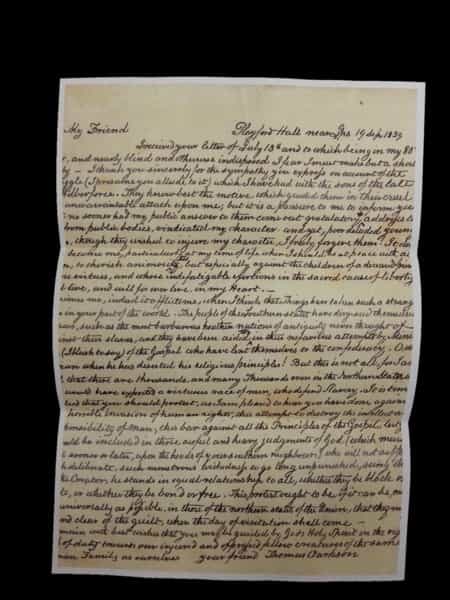 My Friend Playford Hall near Ips 19 Sep 1839
I received your letter of July 13th and to which being in my 80
and nearly blind and otherwise indisposed I fear I must make but a short
I thank you sincerely for the sympathy you express on account of the
(I presume you allude to it) which I have had with the sons of the late
They knew best the motive, which guided them in their cruel
unwarrantable attack upon me; but it is a pleasure to me to inform you
no sooner had my public answer to them come out gratulatory addresses
from public bodies, vindicated my character
though they wished to injure my character, I freely forgive them.
become me, particularly at my time of life when I should be at peace with
to cherish animosity, but especially against the children of a
virtues, and whose indefatigable exertions in the sacred cause of liberty
love, and call for our love, in my Heart. —
me, indeed it afflicts me, when I think that Things have taken such a strange
in your part of the world. The people of the Southern states have disgraced themselves
such, as the most barbarous heathen nations of antiquity never thought of —
their slaves, and they have been aided in their nefarious attempts by Men
(I blush to say) of the Gospel who have lent themselves to the confederacy.
when he has deserted his religious Principles! But this is not all, for I
that there are thousands, and many Thousands even in the Northern States
would have expected a virtuous race of men, who defend Slavery. It is
that you should protest, as I am pleased to hear you have done, against
horrible Invasion of human rights, this attempt to destroy the intellect
of Man, this bar against all the Principles of the Gospel,
be included in those awful and heavy judgments of God (which must
sooner or later, upon the heads of your southern neighbours) who will not
deliberate, such monstrous wickedness to go long unpunished, seeing
Creator, he stands in equal relationship to all, whether they be black or
or whether they be bond or free. This protest ought to be if it can be,
universally as possible, in those of the northern states of the Union, that they
clear of the guilt, when the day of visitation shall come —
with best wishes that you may be guided by God's Holy Spirit in the
of duty towards our injured and oppressed fellow creatures of the same
Family as ourselves your friend Thomas Clarkson